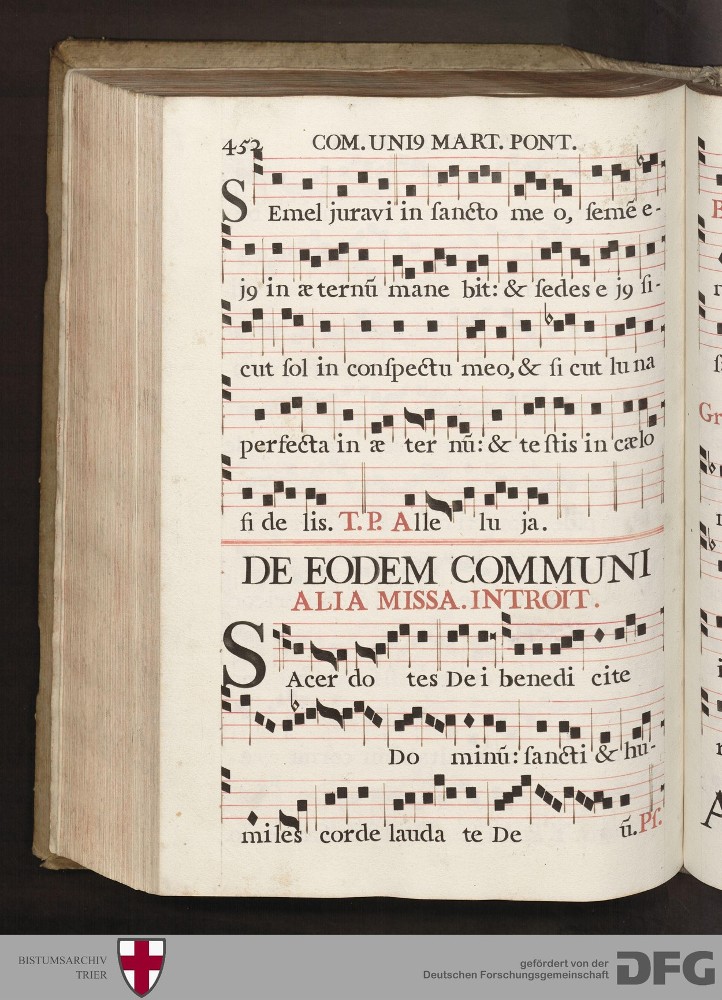 452 COM. UNI9 MART. PONT.
SEmel juravi in ſancto me o, ſemẽ e-
j9 in æ ternũ mane bit: & ſedes e j9 ſi-
cut ſol in conſpectu meo, & ſi cut lu na
perfecta in æ ter nũ: & te ſtis in cælo
fi de lis. T. P. Alle lu ja.
DE EODEM COMMUNI
ALIA MISSA. INTROIT.
SAcer do tes De i benedi cite
Do minũ: ſancti & hu-
mi les corde lauda te De ũ. Pſ.
Gr
BISTUMSARCHIV
TRIER
gefördert von der
Deutschen Forschungsgemeinschaft
DFG